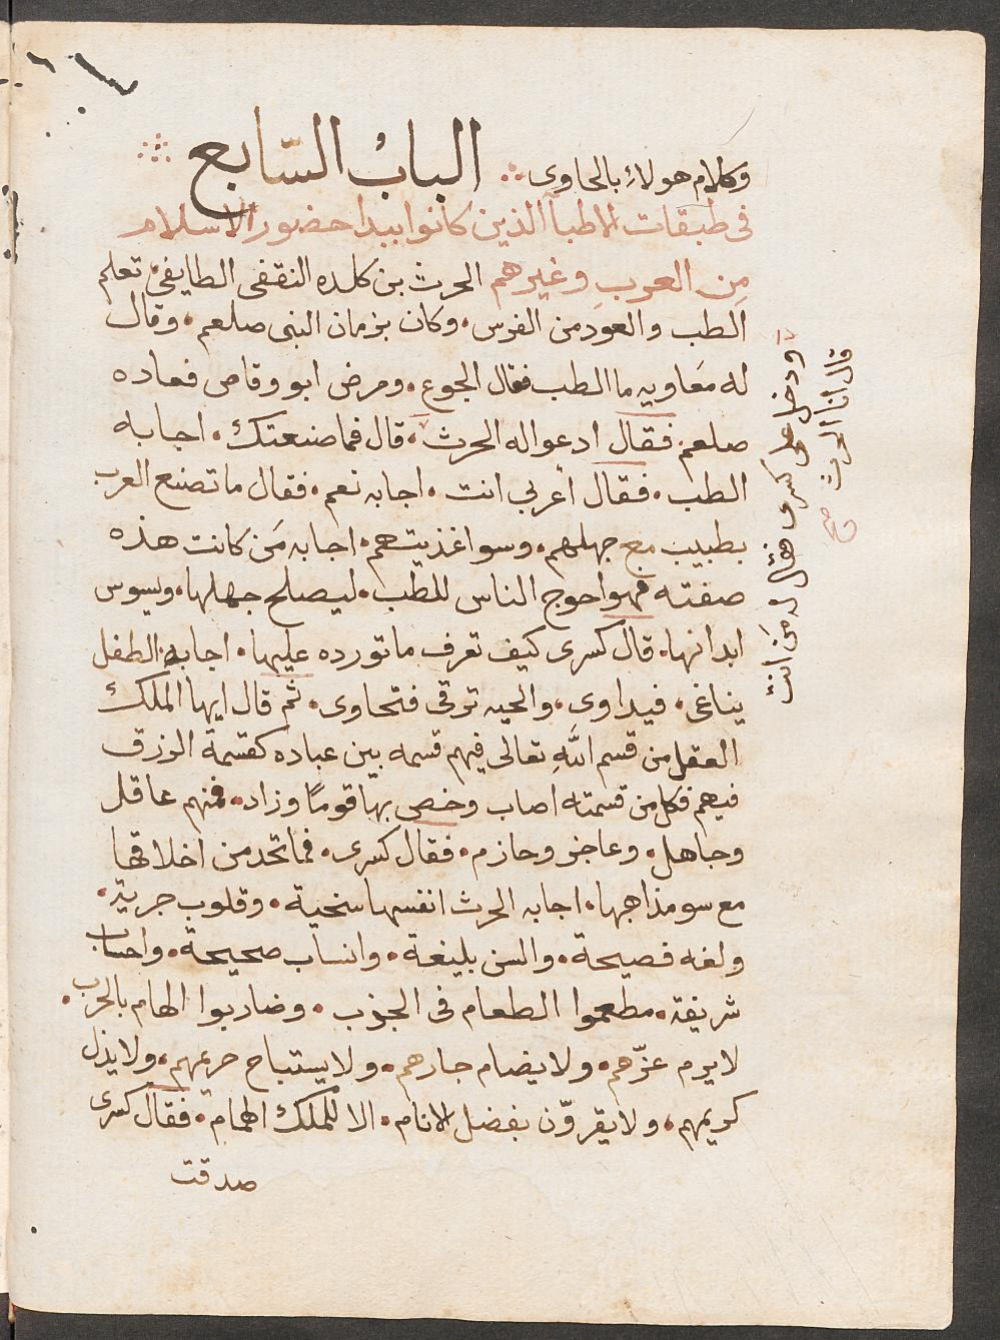 وكلام هولاء بالحاوى الباب السّابع
فى طبقات الاطبآ الذين كانوا ببدا حضور الاسلام
مِن العربِ وغيرهم الحرث بن كلده الثقفى الطايفى تعلم
الطب والعود من الفرس وكان بزمان النبى صلعم وقال
له معاويه ما الطب فقال الجوع ومرض ابو وقاص فعاده
صلعم فقال ادعوا له الحرث قال فما صنعتك اجابه
الطب فقال أعربى انت اجابه نعم فقال ما تصنع العرب
بطبيب مع جهلهم وسوا اغذيتهم اجابه مَن كانت هذه
صفته فهوا حوج الناس للطب ليصلح جهلها ويسوس
ابدانها قال كسرى كيف تعرف ما تورده عليها اجابه الطفل
يناغى فيداوى والحيه توقى فتحاوى ثم قال ايها الملك
العقل من قسم اللّٰه تعالى فيهم قسمه بين عباده كقسمة الرزق
فيهم فكل من قسمته اصاب وخص بها قومًا وزاد فمنهم عاقل
وجاهل وعاجز وحازم فقال كسرى فما تحد من اخلاقها
مع سو مذاجها اجابه الحرث انفسها سخية وقلوب جرية
ولغه فصيحة والسن بليغة وانساب صحيحة واحساب
شريفة مطعموا الطعام فى الجذب وضاربوا الهام بالحرب
لا يرم عزّهم ولا يضام جارهم ولا يستباح حريمهم ولا يذل
كريمهم ولا يقروّن بفضل الانام الا للملك الهمام فقال كسرى
صدقت
ودخل على كسرى فقال له مَن انت
قال انا الحرث
صح